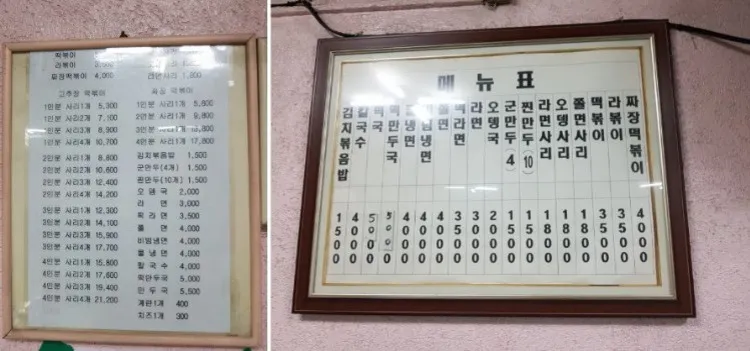 떡볶이
라볶이
짜장떡볶이 4,000
라면사리 1,000
고추장 떡볶이
1인분 사리1개 5,300
1인분 사리2개 7,100
1인분 사리3개 8,900
1인분 사리4개 10,700
2인분 사리1개 8,800
2인분 사리2개 10,600
2인분 사리3개 12,400
2인분 사리4개 14,200
3인분 사리1개 12,300
3인분 사리2개 14,100
3인분 사리3개 15,900
3인분 사리4개 17,700
4인분 사리1개 15,800
4인분 사리2개 17,600
4인분 사리3개 19,400
4인분 사리4개 21,200
짜장 떡볶이
1인분 사리1개 5,800
2인분 사리1개 9,800
3인분 사리1개 13,800
4인분 사리1개 17,800
김치볶음밥 1,500
군만두(4개) 1,500
찐만두(10개) 1,500
오뎅국 2,000
라면 3,000
떡라면 3,500
쫄면 4,000
비빔냉면 4,000
물냉면 4,000
칼국수 4,000
떡만두국 5,000
만두국 5,500
계란1개 400
치즈1개 300
메뉴표
짜장떡볶이 4000
라볶이 3500
떡볶이 3500
쫄면사리 1800
오뎅사리 1800
라면사리 1800
찐만두(10) 1500
군만두(4) 1500
오뎅국 2000
라면 3000
떡라면 3500
쫄면 4000
냉면 4000
냉면 4000
떡만두국
떡국 5000
칼국수 4000
김치볶음밥 1500